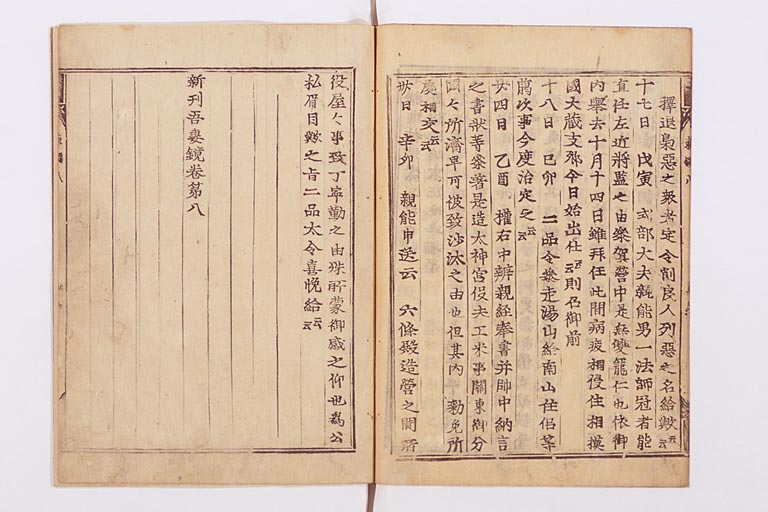 擇退梟惡之衆者定令削良人列惡之名給歟云云
十七日 戊寅 式部大夫親能男一法師冠者能
直任左近將監之由參賀營中是無雙寵仁也依御
内擧去十月十四日雖拜任此間病疾相侵住相摸
國大藏支郷今日始出仕云云則召御前
十八日 己卯 二品令參走湯山給南山住侶等
萬次事今度治定之云云
廿四日 乙酉 權右中辨親經奉書并師中納言
之書狀等參著是造太神宮役夫工米事關東御分
國々所濟早可被致沙汰之由也但其内 勅免所
處相交云云
卅日 辛卯 親能申送云 六條殿造營之間所
役屋々事致丁寧勤之由殊所蒙御感之仰也爲公
私眉目歟之旨二品太令喜悦給云云
新刊吾妻鏡卷第八